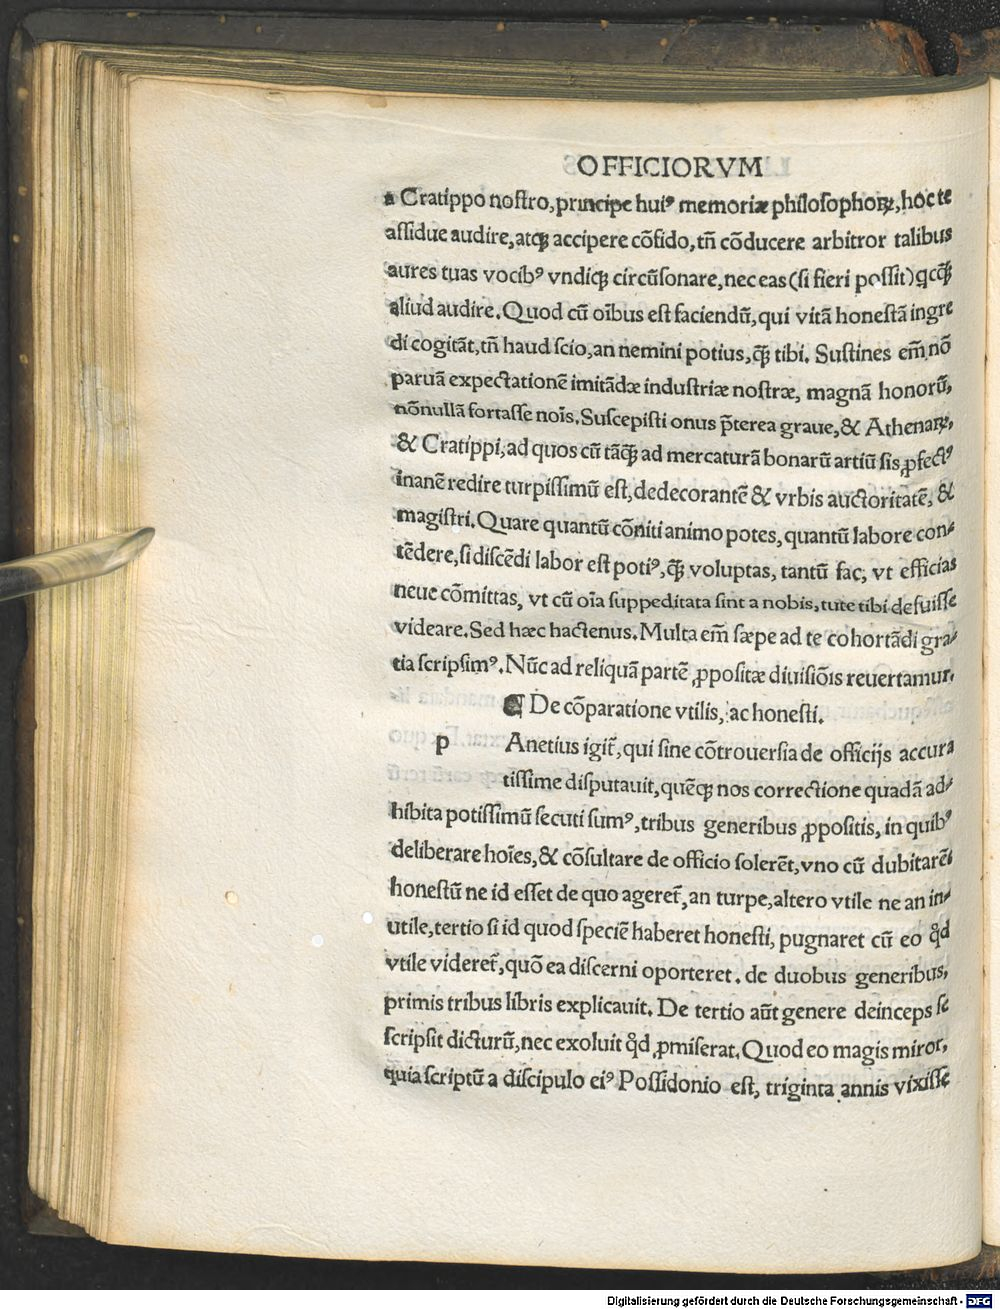 OFFICIORVM
a Cratippo nostro,principe huiꝰ memoriæ philosophoꝝ,hoc te
assidue audire,atqꝫ accipere cõfido,tñ cõducere arbitror talibus
aures tuas vocibꝰ vndiqꝫ circũsonare,nec eas(si fieri possit)qcq̃ꝫ
aliud audire.Quod cũ oĩbus est faciendũ,qui vitã honestã ingre
di cogitãt,tñ haud scio,an nemini potius,q̃ꝫ tibi. Sustines em̃ nõ
paruã expectationẽ imitãdæ industriæ nostræ, magnã honorũ,
nõnullã fortasse noĩs.Suscepisti onus p̃terea graue,& Athenaꝝ,
& Cratippi,ad quos cũ tãq̃ꝫ ad mercaturã bonarũ artiũ sis ꝓfectꝰ
inanẽ redire turpissimũ est,dedecorantẽ & vrbis auctoritatẽ, &
magistri.Quare quantũ cõniti animo potes,quantũ labore con-
tẽdere,si discẽdi labor est potiꝰ,q̃ꝫ voluptas, tantũ fac, vt efficias
neue cõmittas, vt cũ oĩa suppeditata sint a nobis,tute tibi defuisse
videare.Sed hæc hactenus.Multa em̃ sæpe ad te cohortãdi gra-
tia scripsimꝰ.Nũc ad reliquã partẽ ꝓpositæ diuisiõis reuertamur.
¶ De cõparatione vtilis, ac honesti.
p Anetius igit̃,qui sine cõtrouersia de officijs accura
tissime disputauit,quẽqꝫ nos correctione quadã ad-
hibita potissimũ secuti sumꝰ,tribus generibus ꝓpositis, in quibꝰ
deliberare hoĩes,& cõsultare de officio solerẽt,vno cũ dubitarẽt
honestũ ne id esset de quo ageret̃,an turpe,altero vtile ne an in-
utile,tertio si id quod speciẽ haberet honesti, pugnaret cũ eo qđ
vtile videret̃,quõ ea discerni oporteret. de duobus generibus,
primis tribus libris explicauit. De tertio aũt genere deinceps se
scripsit dicturũ,nec exoluit qđ ꝓmiserat.Quod eo magis miror,
quia scriptũ a discipulo eiꝰ Possidonio est, triginta annis vixisse
Digitalisierung gefördert durch die Deutsche Forschungsgemeinschaft - DFG